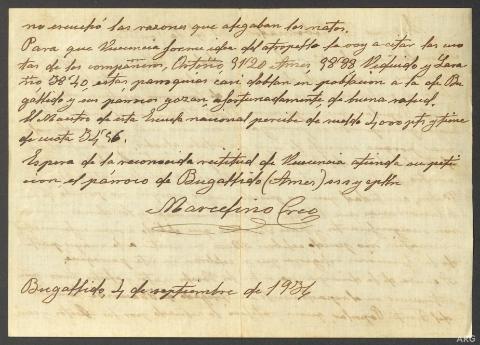 no escuchó las razones que alegaban los natos.
Para que Vuecencia forme idea del atropello le voy a citar las cuo
tas de los compañeros, Ortoño 31'20 Ames 38'88 Viduido y Lara
ño 38'40, estas parroquias casi doblan en población a la de Bu
gallido y sus párrocos gozan, afortunadamente, de buena salud.
El Maestro de esta Escuela nacional percibe de sueldo 4.000 pts y tiene
de cuota 34'56.
Espera de la reconocida rectitud de Vuecencia atienda su peti
cion el párroco de Bugallido (Ames)
Marcelino Creo
Bugallido, 4 de septiembre de 1934
AKG